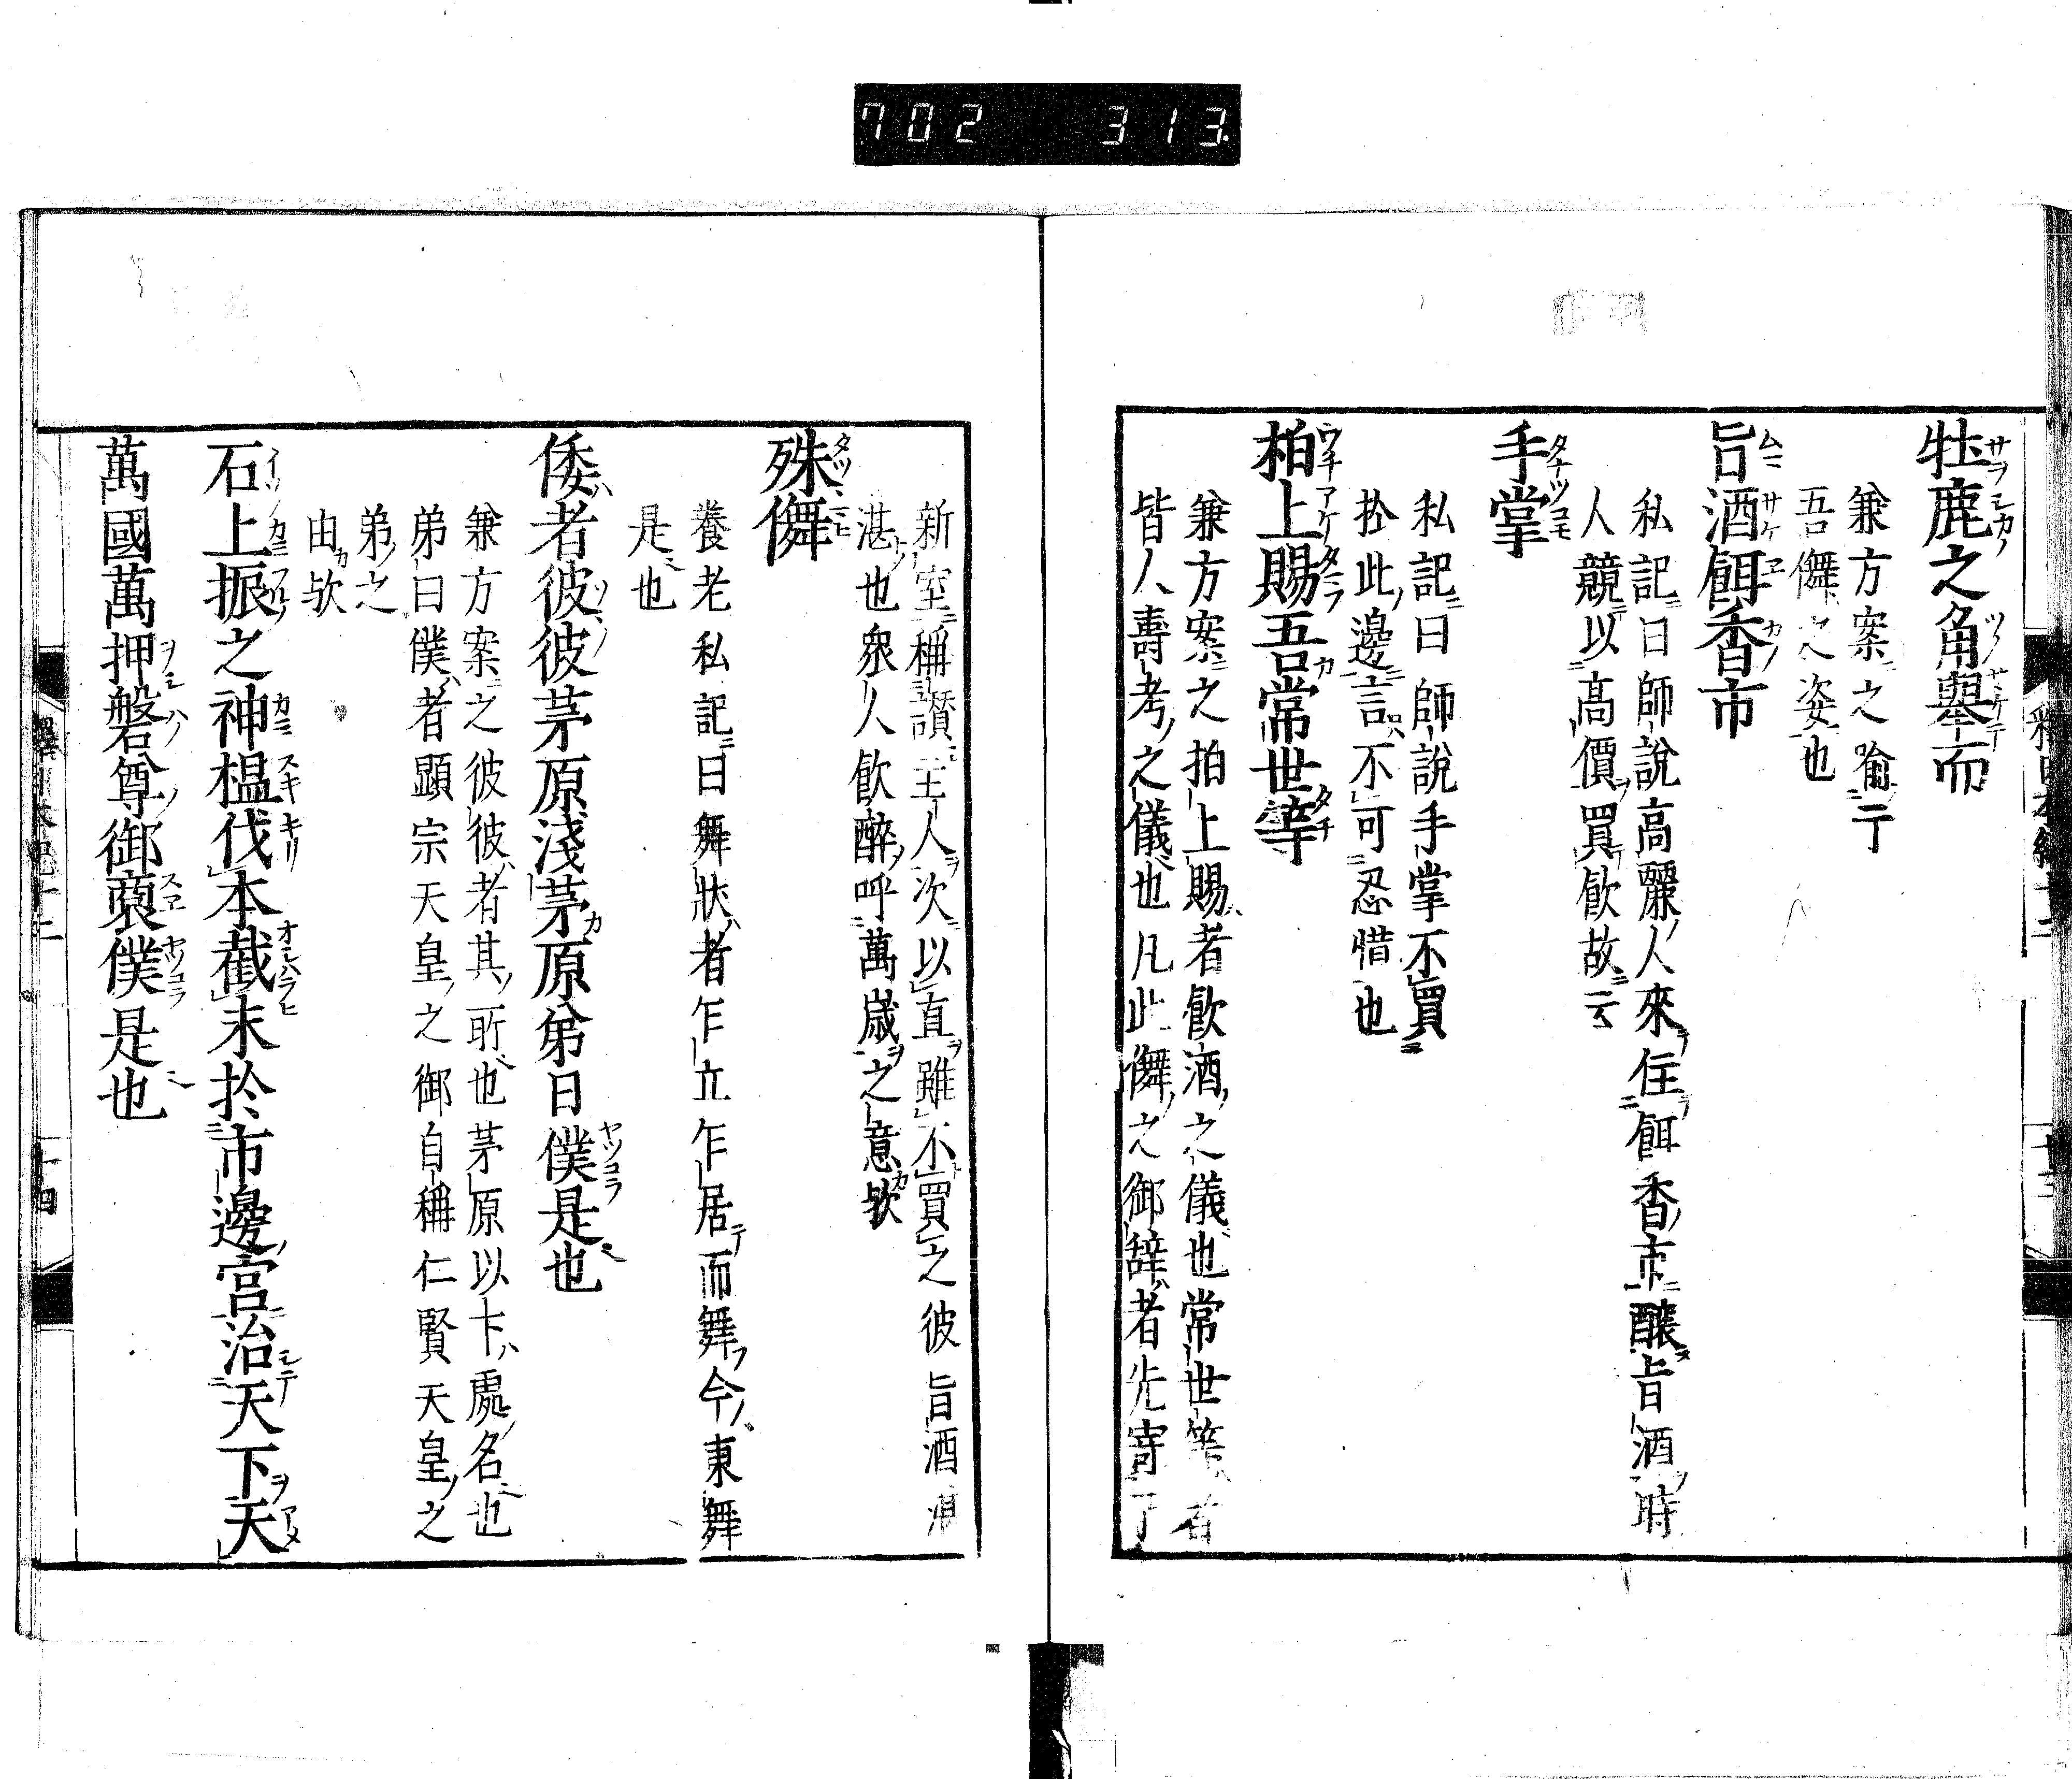 702 313
牡鹿之角舉而
兼方案之喩于
吾儛之姿也
旨酒餌香市
私記曰師說高麗人來住餌香市釀旨酒時
人競以高價買飲故云
手掌
私記曰師說手掌不買
於此邊言不可忍惜也
柏上賜吾常世等
兼方案之拍上賜者飲酒之儀也常世等者
皆人壽考之儀也凡此儛之御辞者先寄了
新室稱讃主人次以直雖不買之彼旨酒
湛也衆人飲醉呼萬歲之意欤
殊儛
養老私記曰舞狀者乍立乍居而舞今東舞
是也
倭者彼彼茅原淺茅原弟曰僕是也
兼方案之彼彼者其所也茅原以下處名也
弟曰僕者顯宗天皇之御自稱仁賢天皇之
弟之
由欤
石上振之神榲伐本截末於市邊宮治天下天
萬國萬押磐尊御裔僕是也